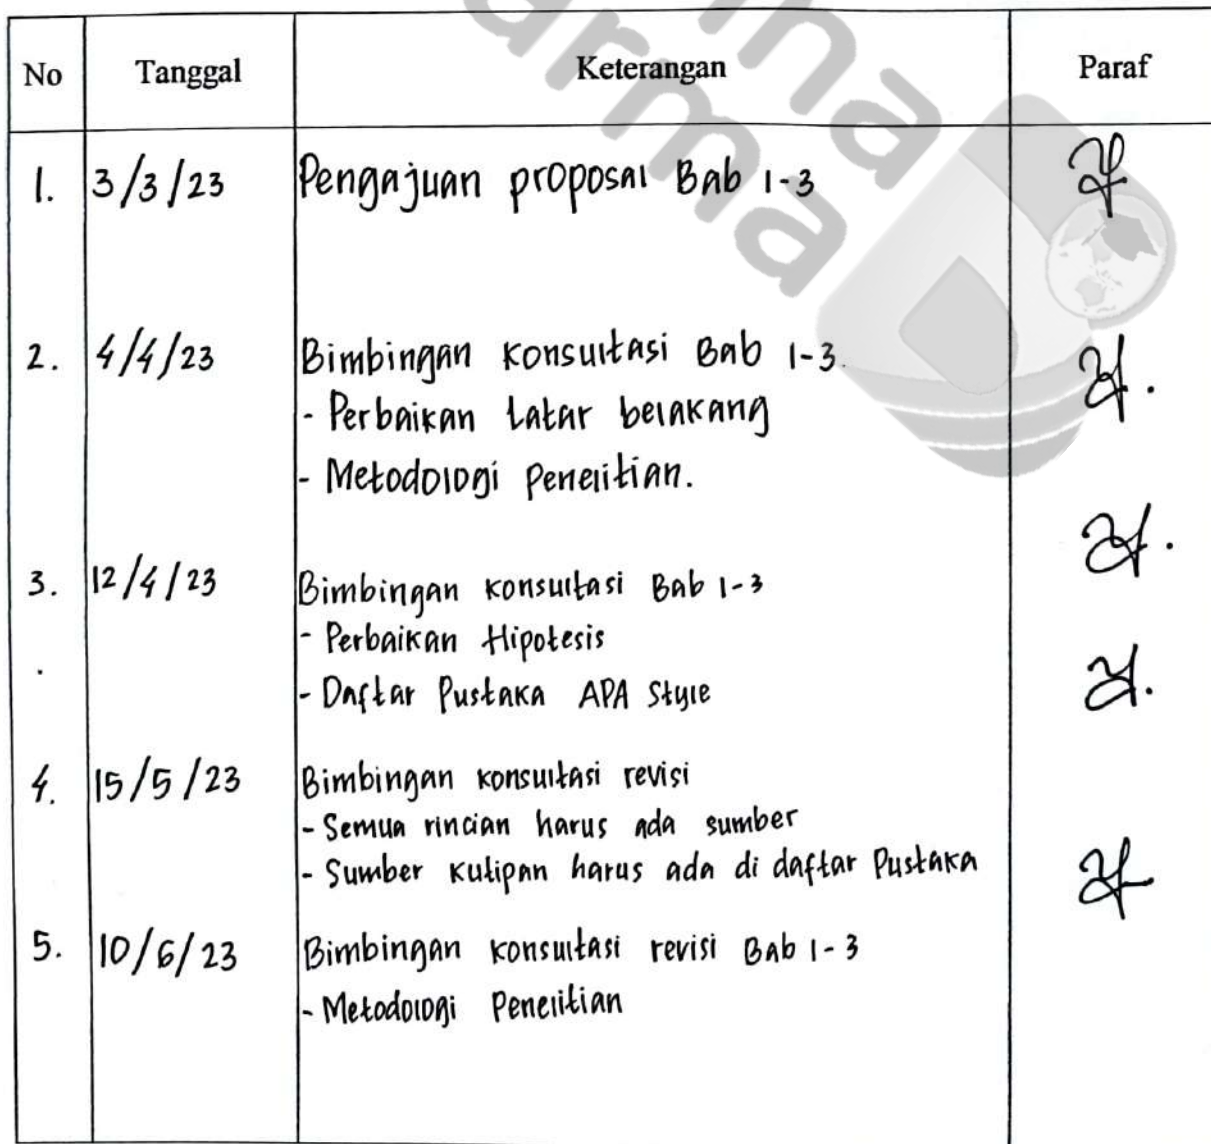 No Tanggal Keterangan Paraf
1. 3/3/23 Pengajuan proposal Bab 1-3
2. 4/4/23 Bimbingan Konsultasi Bab 1-3.
- Perbaikan Latar belakang
- Metodologi Penelitian.
3. 12/4/23 Bimbingan Konsultasi Bab 1-3
- Perbaikan Hipotesis
- Daftar Pustaka APA Style
4. 15/5/23 Bimbingan Konsultasi revisi
- Semua rincian harus ada sumber
- Sumber Kutipan harus ada di daftar Pustaka
5. 10/6/23 Bimbingan Konsultasi revisi Bab 1-3
- Metodologi Penelitian